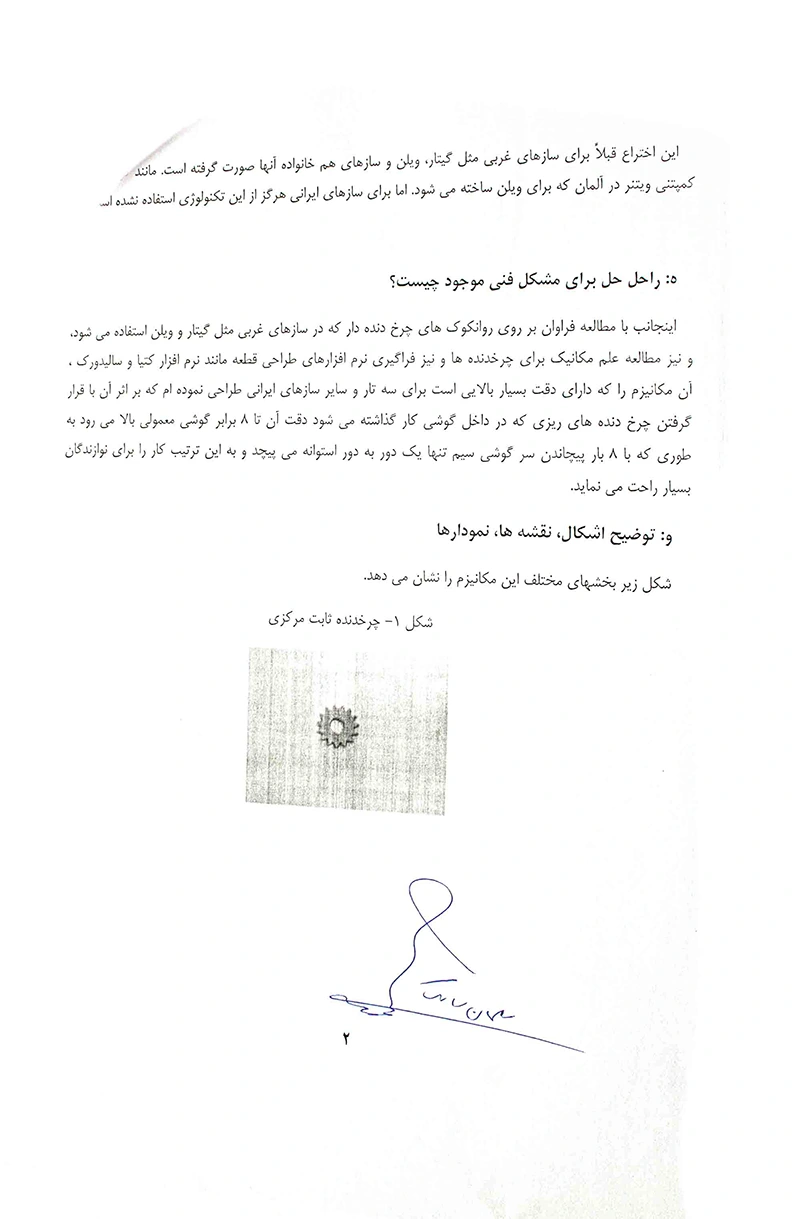 این اختراع قبلاً برای سازهای غربی مثل گیتار، ویلن و سازهای هم خانواده آنها صورت گرفته است. مانند
کمپتنی ویتنر در آلمان که برای ویلن ساخته می شود. اما برای سازهای ایرانی هرگز از این تکنولوژی استفاده نشده
ه: راحل حل برای مشکل فنی موجود چیست؟
اینجانب با مطالعه فراوان بر روی روانکوک های چرخ دنده دار که در سازهای غربی مثل گیتار و ویلن استفاده می شود،
و نیز مطالعه علم مکانیک برای چرخدنده ها و نیز فراگیری نرم افزارهای طراحی قطعه مانند نرم افزار کتیا و سالیدورک ،
آن مکانیزم را که دارای دقت بسیار بالایی است برای سه تار و سایر سازهای ایرانی طراحی نموده ام که بر اثر آن با قرار
گرفتن چرخ دنده های ریزی که در داخل گوشی کار گذاشته می شود دقت آن تا ۸ برابر گوشی معمولی بالا می رود به
طوری که با ۸ بار پیچاندن سر گوشی سیم تنها یک دور به دور استوانه می پیچد و به این ترتیب کار را برای نوازندگان
بسیار راحت می نماید.
و: توضیح اشکال، نقشه ها، نمودارها
شکل زیر بخشهای مختلف این مکانیزم را نشان می دهد.
شکل ۱- چرخدنده ثابت مرکزی
۲